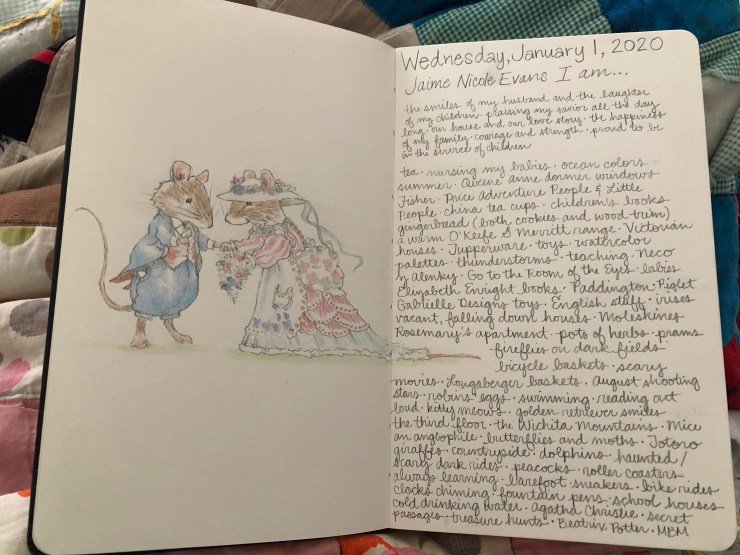 Wednesday, January 1, 2020
Jaime Nicole Evans I am...
the smiles of my husband and the laughter
of my children · praising my savior all the day
long · our house and our love story · the happiness
of my family · courage and strength · proud to be
in the service of children
tea · nursing my babies · ocean colors
summer · Queene anne dormer windows
Fisher Price Adventure People & Little
People · china tea cups · children's books
gingerbread (both cookies and wood trim)
a warm O'Keefe & Merritt range · Victorian
houses · Tupperware · toys · watercolor
palettes · thunderstorms · teaching Neco
n Alenky · Go to the Room of the Eyes · babies
Elizabeth Enright books · Paddington · Piglet
Gabrielle Designs toys · English stuff · irises
vacant, falling down houses · Moleskines
Rosemary's apartment · pots of herbs · prams
fireflies on dark fields
bicycle baskets · scary
movies · Longaberger baskets · August shooting
stars · robins' eggs · swimming · reading out
loud · kitty meows · golden retriever smiles
the third floor · the Wichita Mountains · Mice
an anglophile · butterflies and moths · Totoro
giraffes · countryside · dolphins · haunted/
scary dark rides · peacocks · roller coasters
always learning · barefoot · sneakers · bike rides
clocks chiming · fountain pens · school houses
cold drinking water · agatha Christie · secret
passages · treasure hunts · Beatrix Potter · MBM